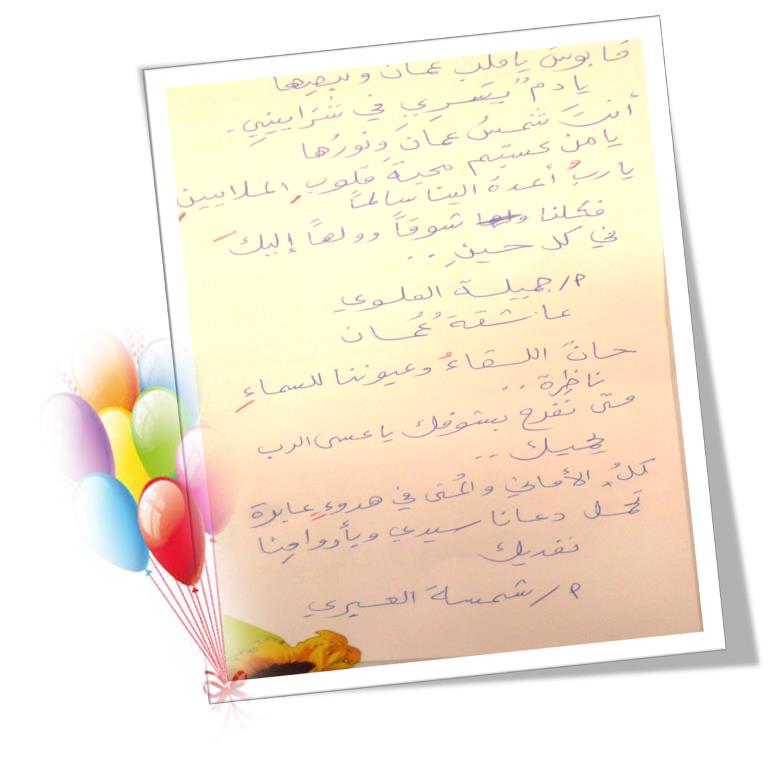 قابوسَ ياقلبَ عمانَ ونبضِها
يادم" يَسرِي في شَرَايِينِي.
أنتَ شَمسُ عمانَ ونورُها
يامن بحبكم محبةَ قلوبِ الملايينِ
ياربُ أعدهُ الينا سالماً
فكلنا شوقاً وولهاً إليكَ
في كل حينٍ ..
م/ جميلة العلوي
عاشقةُ عُمان
حانَ اللقاءُ وعيوننا للسماءِ
ناظِرة ..
متى نفرح بشوفك ياعسى الرب
يحميك ..
كلُ الأماني والمُنى في هدوءٍ عابرة
تحمل دعانا سيدي وبأرواحِنا
نفديك
م/ شمسة العبري